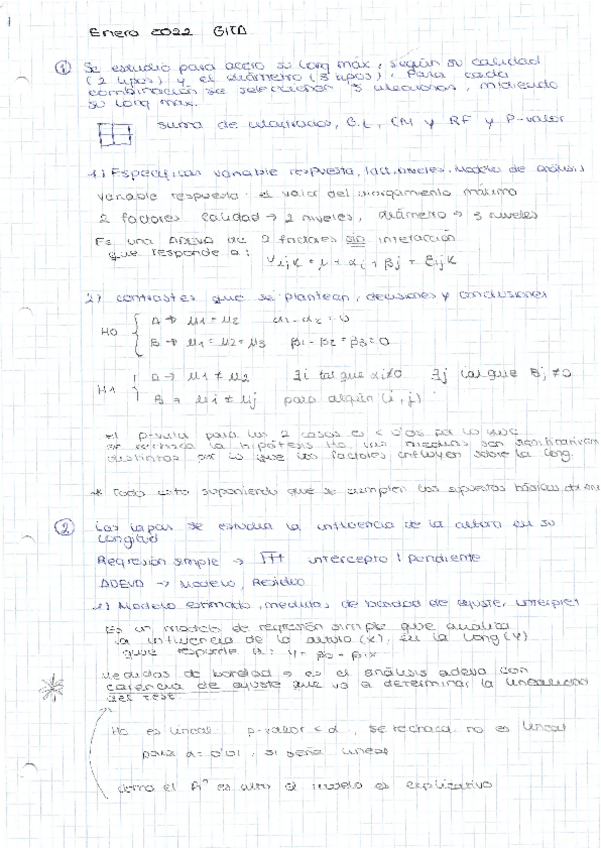 1
Enero 2022 GITA
① Se estudia para acero su long máx, según su calidad
(2 tipos) y el diámetro (3 tipos). Para cada
combinación se seleccionan 3 , midiendo
su long max.
suma de cuadrados, G.L, CM y RF y P-valor
1) Especificar variable respuesta, fact, niveles. Modelo de análisis
variable respuesta: el valor del alargamiento máximo
2 factores calidad → 2 niveles, diámetro → 3 niveles
Es una ADEVA de 2 factores sin interacción
que responde a: Yijk = μ + αi + βj + εijk
2) contrastes que se plantean, decisiones y conclusiones
H0 A → μ1 = μ2 α1 = α2 = 0
B → μ1 = μ2 = μ3 β1 = β2 = β3 = 0
H1 A → μ1 ≠ μ2 ∃i tal que αi ≠ 0 ∃j tal que βj ≠ 0
B → μi ≠ μj para algún (i, j)
el p-valor para los 2 casos es < 0'05 por lo que
se rechaza la hipótesis H0, las medias son
distintas por lo que los factores influyen sobre la long.
* Todo esto suponiendo que se cumplen los supuestos básicos de
② Las lapas se estudia la influencia de la altura en su
longitud
Regresión simple → intercepto | pendiente
ADEVA → Modelo, Residuo
1) Modelo estimado, medidas de bondad de ajuste, interpret
Es un modelo de regresión simple que analiza
la influencia de la altura (X), en la long (Y)
que responde a: Y = β0 - β1x
Medidas de bondad → es el análisis adeva con
carencia de ajuste que va a determinar la linealidad
del
H0 es lineal p-valor < α, se rechaza no es lineal
para α = 0'01, si sería lineal
como el R² es alto el modelo es explicativo